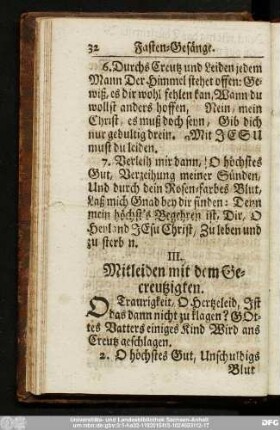 32 Fasten-Gesänge.
6. Durchs Creutz und Leiden jedem
Mann Der Himmel stehet offen: Ge-
wiß, es dir wohl fehlen kan, Wann du
wollst anders hoffen, Nein, mein
Christ, es muß doch seyn, Gib dich
nur gedultig drein. Mit JESU
must du leiden.
7. Verleih mir dann, O höchstes
Gut, Verzeihung meiner Sünden,
Und durch dein Rosen-farbes Blut,
Laß mich Gnad bey dir finden: Denn
mein höchst's Begehren ist, Dir, O
Heyland JEsu Christ, Zu leben und
zu sterb n.
III.
Mitleiden mit dem Ge-
creutzigten.
O Traurigkeit, O Hertzeleid, Ist
das dann nicht zu klagen? GOt-
tes Vatters einiges Kind Wird ans
Creutz geschlagen.
2. O höchstes Gut, Unschuldigs
Blut
Universitäts- und Landesbibliothek Sachsen-Anhalt
DFG